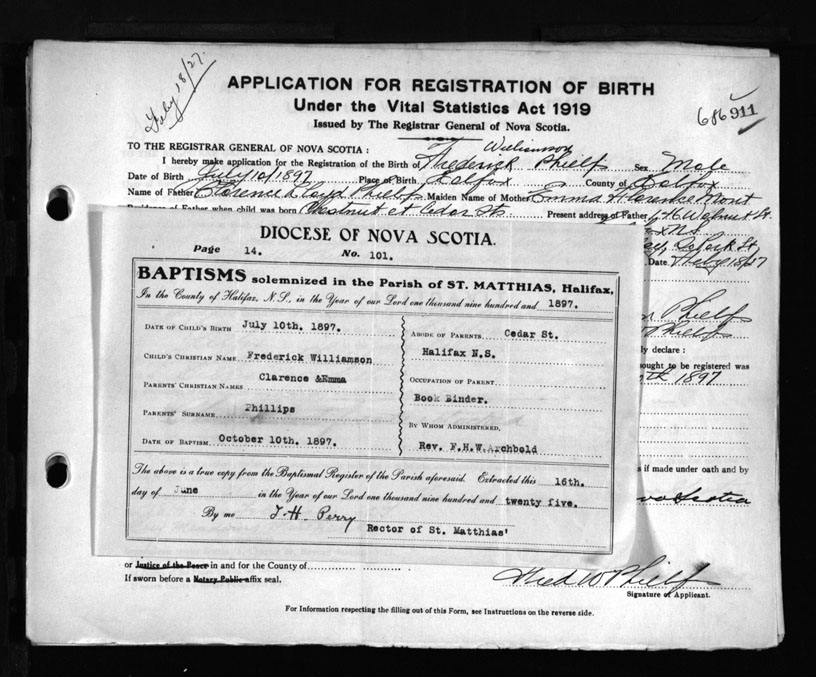 July 18/27.
APPLICATION FOR REGISTRATION OF BIRTH
Under the Vital Statistics Act 1919
Issued by The Registrar General of Nova Scotia.
686911
TO THE REGISTRAR GENERAL OF NOVA SCOTIA :
Williamson
I hereby make application for the Registration of the Birth of Frederick Phielps Sex Male
Date of Birth July 10 1897 Place of Birth Halifax County of Halifax
Name of Father Clarence Lloyd Phielps Maiden Name of Mother Emma Florence Mont
Residence of Father when child was born Chestnut et Cedar Sts. Present address of Father 646 Walnut St.
x N.S.
Date
DIOCESE OF NOVA SCOTIA.
Page 14. No. 101.
BAPTISMS solemnized in the Parish of ST. MATTHIAS, Halifax,
In the County of Halifax, N.S., in the Year of our Lord one thousand nine hundred and 1897.
DATE OF CHILD'S BIRTH July 10th. 1897.
CHILD'S CHRISTIAN NAME Frederick Williamson
PARENTS' CHRISTIAN NAMES Clarence &Emma
PARENTS' SURNAME Phillips
DATE OF BAPTISM October 10th. 1897.
ABODE OF PARENTS Cedar St.
Halifax N.S.
OCCUPATION OF PARENT
Book Binder.
BY WHOM ADMINISTERED,
Rev. F.H.W.Archbold
The above is a true copy from the Baptismal Register of the Parish aforesaid. Extracted this 16th.
day of June in the Year of our Lord one thousand nine hundred and twenty five.
By me T. H. Perry
Rector of St. Matthias'
Phielps
Phielps
ly declare :
ought to be registered was
th 1897
s if made under oath and by
ova Scotia
or Justice of the Peace in and for the County of
If sworn before a Notary Public affix seal.
Fred W Phielps
Signature of Applicant.
For Information respecting the filling out of this Form, see Instructions on the reverse side.